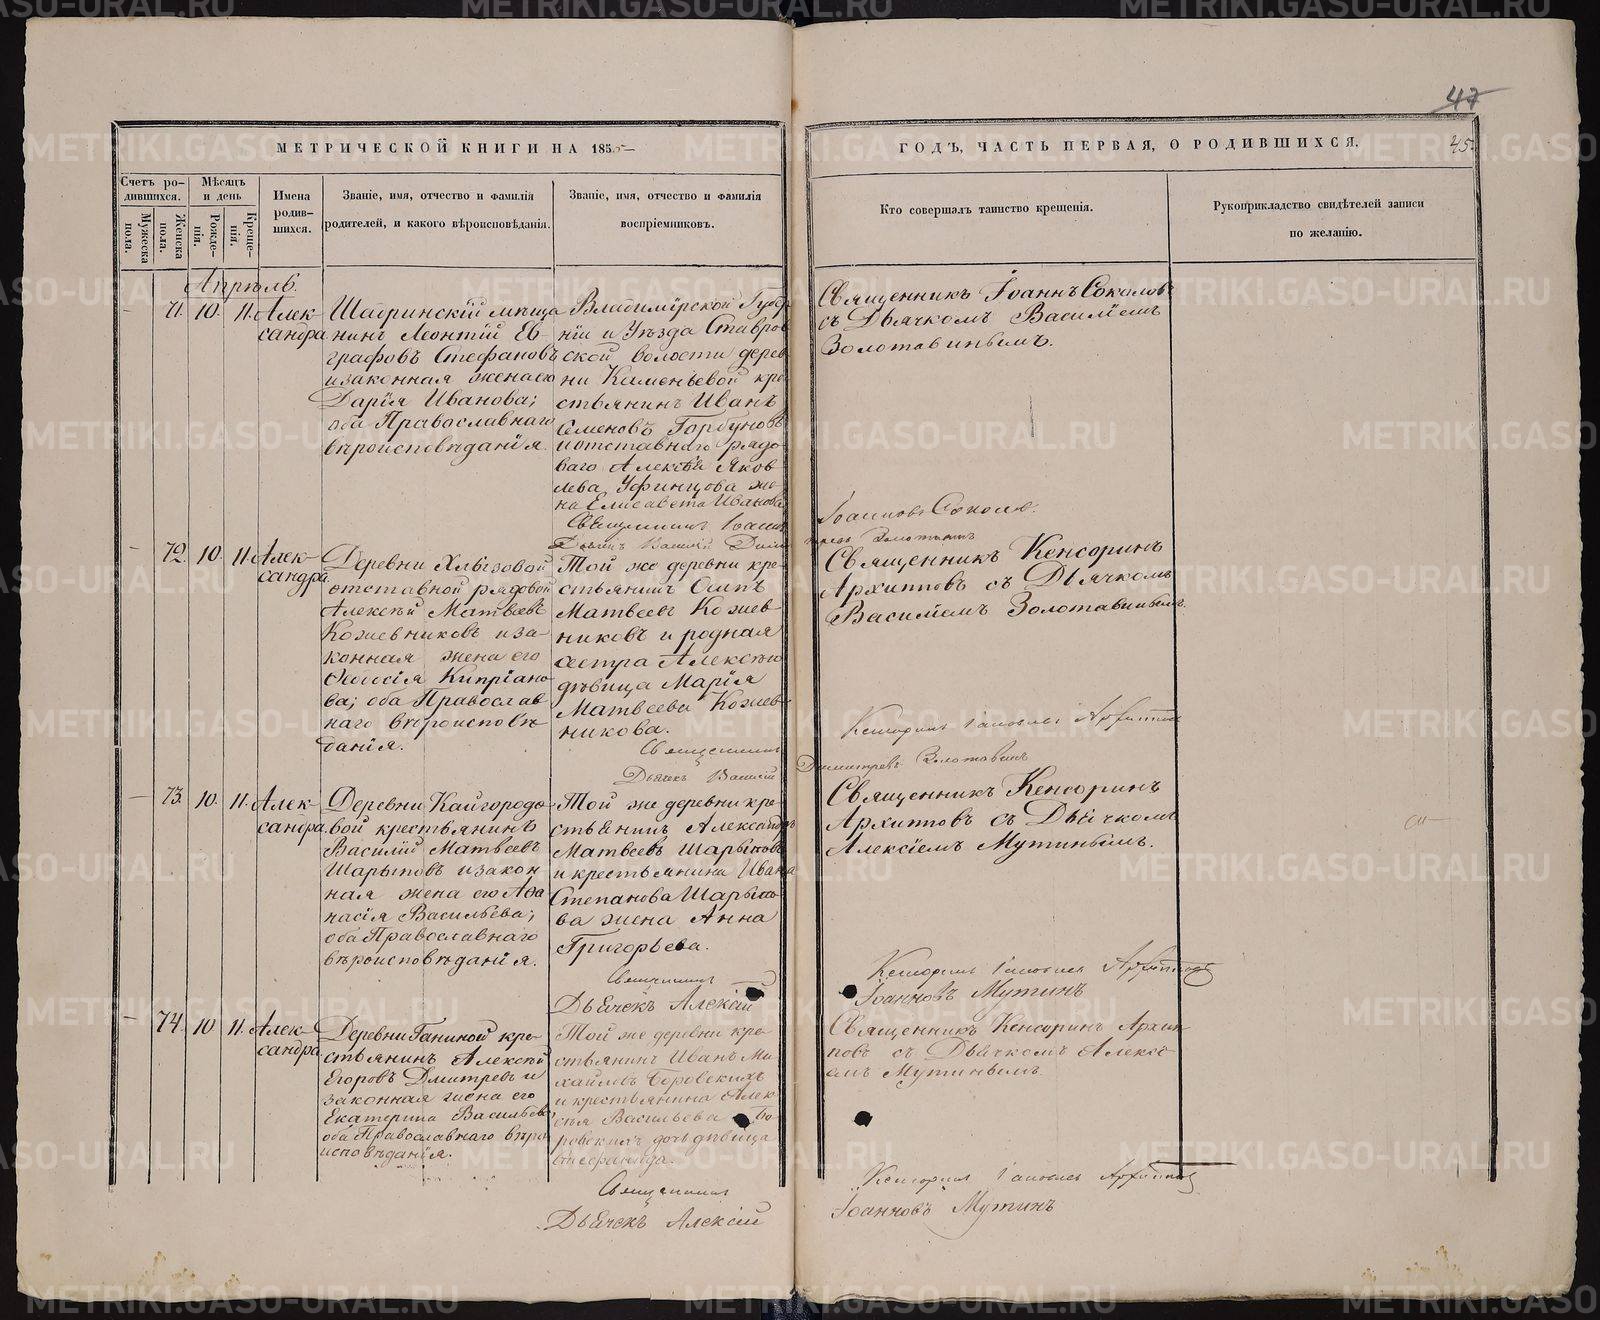 47
45.
МЕТРИЧЕСКОЙ КНИГИ НА 1855
ГОДЪ, ЧАСТЬ ПЕРВАЯ, О РОДИВШИХСЯ.
Счетъ ро-
дившихся.
Мужеска
пола.
Женска
пола.
Мѣсяцъ
и день
Рожде-
нія.
Креще-
нія.
Имена
родив-
шихся.
Званіе, имя, отчество и фамилія
родителей, и какого вѣроисповѣданія.
Званіе, имя, отчество и фамилія
воспріемниковъ.
Кто совершалъ таинство крещенія.
Рукоприкладство свидѣтелей записи
по желанію.
Апрѣль.
71. 10. 11. Алек-
сандра
Шадринскій мѣща
нинъ Леонтій Ев-
графовъ Стефановъ
и законная жена его
Дарія Иванова;
оба Православнаго
вѣроисповѣданія.
Владимірской Губер
ніи и Уѣзда Ставров
ской волости дерев
ни кре
стьянинъ Иванъ
Семеновъ Горбуновъ
и отставнаго рядо-
ваго Алексѣя Яков-
лева Уфинцова же-
на Елисавета Иванова
Священникъ Іоаннъ Соколовъ
съ Дьячкомъ Василіемъ
Золотавинымъ.
Священникъ Іоаннъ
Іоанновъ Соколов
Дьячекъ Василій Дими
тревъ Золотавинъ
72. 10. 11. Алек-
сандра
Деревни Хлызовой
отставной рядовой
Алексѣй Матвеевъ
Кожевниковъ и за-
конная жена его
Ѳеодосія Кипріано-
ва; оба Православ-
наго вѣроисповѣ-
данія.
Той же деревни кре-
стьянинъ Осипъ
Матвеевъ Кожев-
никовъ и родная
сестра Алексѣю
дѣвица Марія
Матвеева Кожев-
никова.
Священникъ Кенсоринъ
Архиповъ съ Дьячкомъ
Василіемъ Золотавинымъ.
Священникъ
Кенсоринъ Архипов
Дьячекъ Василій
Димитревъ Золотавинъ
73. 10. 11. Алек-
сандра
Деревни Кайгородо-
вой крестьянинъ
Василій Матвеевъ
Шарыповъ и закон-
ная жена его Аѳа-
насія Васильева;
оба Православнаго
вѣроисповѣданія.
Той же деревни кре-
стьянинъ Александръ
Матвеевъ Шарыповъ
и крестьянина Ивана
Степанова Шарыпо-
ва жена Анна
Григорьева.
Священникъ Кенсоринъ
Архиповъ съ Дьячкомъ
Алексіемъ Мутинымъ.
Священникъ
Кенсоринъ Архиповъ
Дьячекъ Алексій
Іоанновъ Мутинъ
74. 10 11. Алек-
сандра
Деревни Ганиной кре-
стьянинъ Алексѣй
Егоровъ Дмитревъ и
законная жена его
Екатерина Васильева
оба Православнаго вѣро
исповѣданія.
Той же деревни кре-
стьянинъ Иванъ Ми-
хайловъ Боровскихъ
и крестьянина Алек-
сѣя Васильева Бо-
ровскихъ дочь дѣвица
Священникъ Кенсоринъ Архип
повъ съ Дьячкомъ Алексі-
емъ Мутинымъ.
Священникъ
Кенсоринъ Архиповъ
Дьячекъ Алексій
Іоанновъ Мутинъ
METRIKI.GASO-URAL.RU